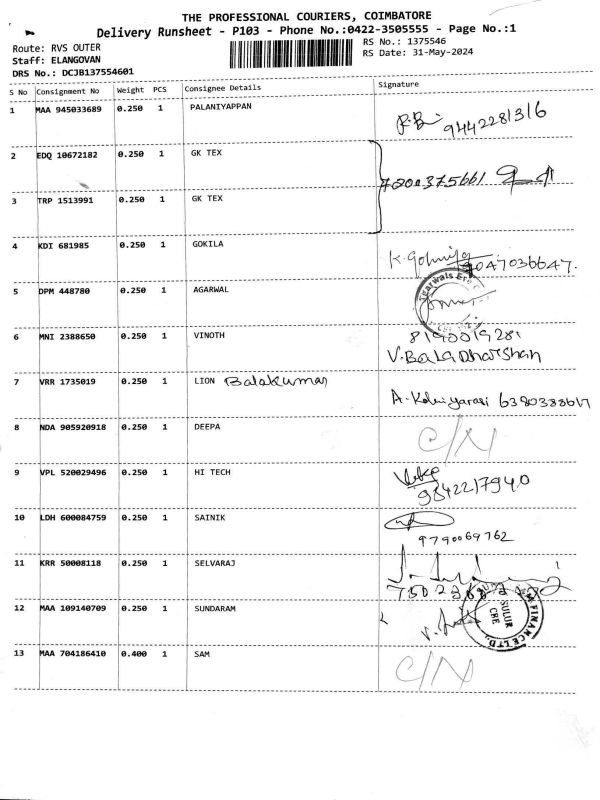 THE PROFESSIONAL COURIERS, COIMBATORE
Delivery Runsheet - P103 - Phone No.:0422-3505555 - Page No.:1
Route: RVS OUTER
RS No.: 1375546
Staff: ELANGOVAN
RS Date: 31-May-2024
DRS No.: DCJB137554601
S No Consignment No Weight PCS Consignee Details Signature
1 MAA 945033689 0.250 1 PALANIYAPPAN 9442281316
2 EDQ 10672182 0.250 1 GK TEX
7200375661
3 TRP 1513991 0.250 1 GK TEX
4 KDI 681985 0.250 1 GOKILA 9047036647.
5 DPM 448780 0.250 1 AGARWAL
6 MNI 2388650 0.250 1 VINOTH 8190019281
V.BalaDharshan
7 VRR 1735019 0.250 1 LION Balakumar
8 NDA 905920918 0.250 1 DEEPA C/N
9 VPL 520029496 0.250 1 HI TECH
9842217940
10 LDH 600084759 0.250 1 SAINIK
9790069762
11 KRR 50008118 0.250 1 SELVARAJ
12 MAA 109140709 0.250 1 SUNDARAM
FINANCE LTD.
SULUR
CBE
13 MAA 704186410 0.400 1 SAM C/N